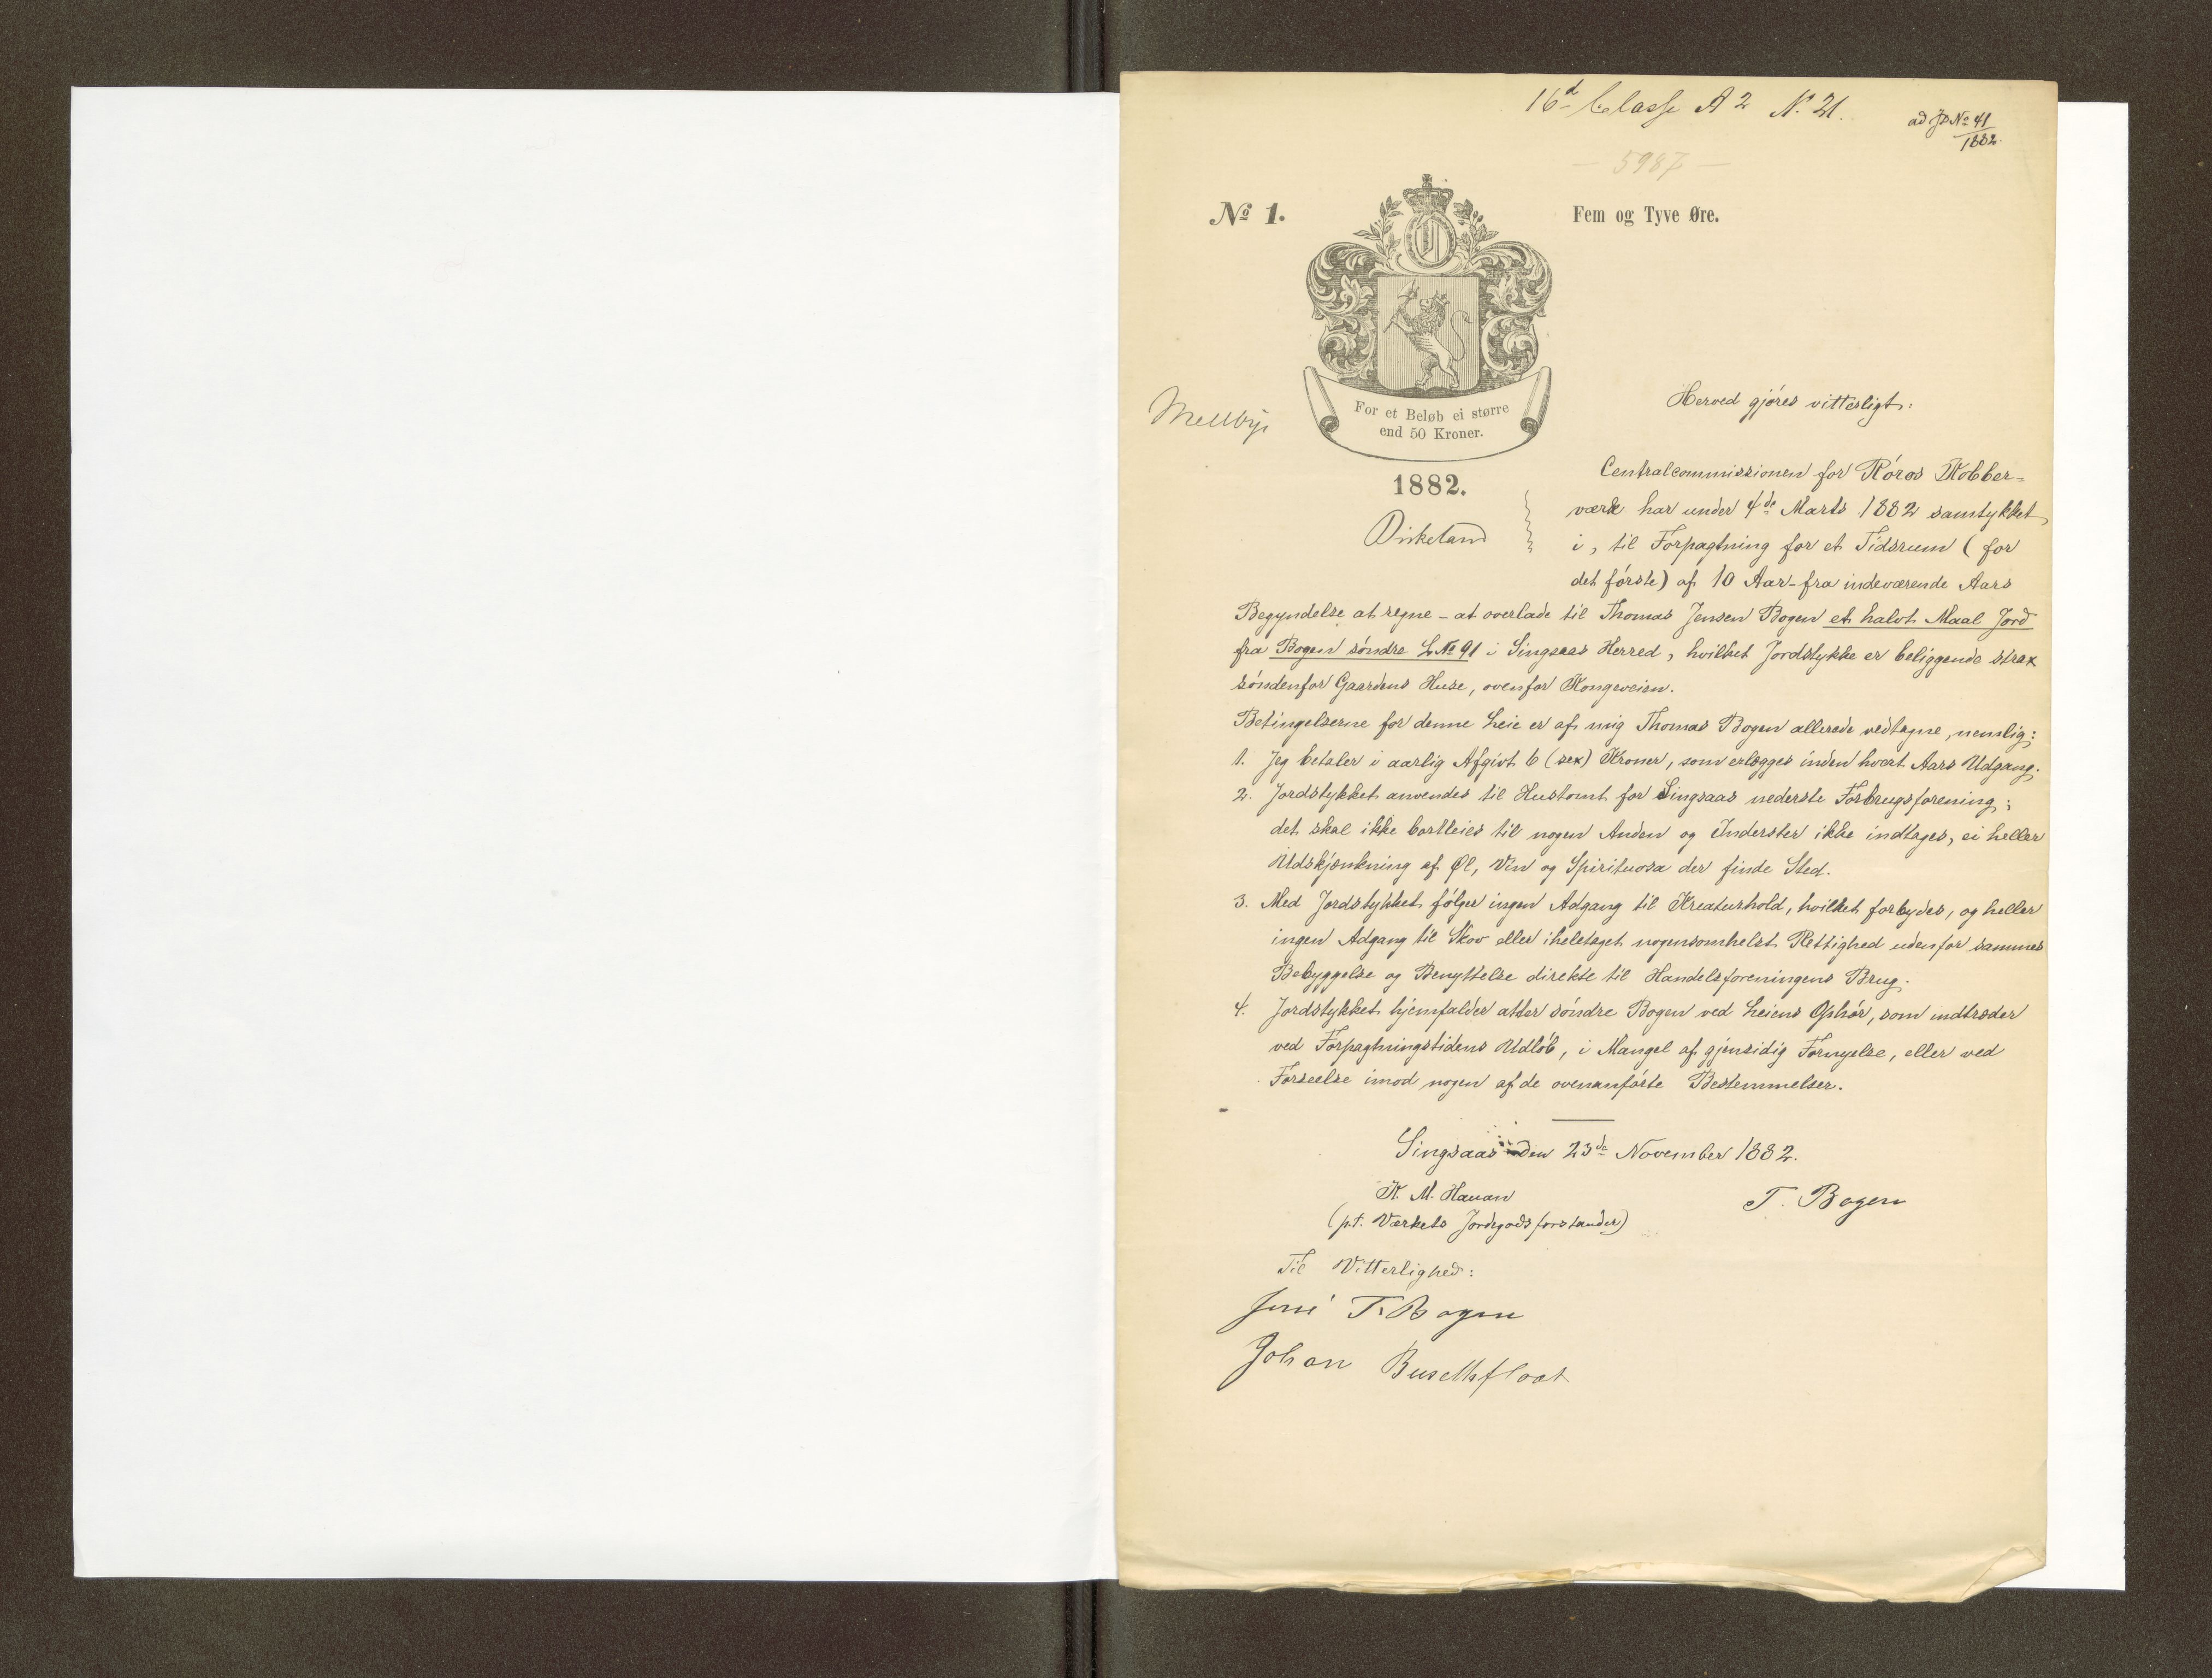 16d Classe A 2 N. 21.
ad JPNo 41
1882.
— 5987 —
No 1.
Fem og Tyve Øre.
For et Beløb ei større
end 50 Kroner.
1882.
Herved gjøres vitterligt:
Centralcommissionen for Røros Kobber=
værk har under 4de Marts 1882 samtykket
i, til Forpagtning for et Tidsrum (for
det første) af 10 Aar - fra indeværende Aars
Begyndelse at regne - at overlade til Thomas Jensen Bogen et halvt Maal Jord
fra Bogen søndre LNo 91 i Singsaas Herred, hvilket Jordstykke er beliggende strax
søndenfor Gaardens Huse, ovenfor Kongeveien.
Betingelserne for denne Leie er af mig Thomas Bogen allerede vedtagne, nemlig:
1. Jeg betaler i aarlig Afgivt 6 (sex) Kroner, som erlægges inden hvert Aars Udgang.
2. Jordstykket anvendes til Hustomt for Singsaas nederste Forbrugsforening;
det skal ikke bortleies til nogen Anden og Inderster ikke indtages, ei heller
Udskjænkning af Øl, Vin og Spirituosa der finde Sted.
3. Med Jordstykket følger ingen Adgang til Kreaturhold, hvilket forbydes, og heller
ingen Adgang til Skov eller iheletaget nogensomhelst Rettighed udenfor sammes
Bebyggelse og Benyttelse direkte til Handelsforeningens Brug.
4. Jordstykket hjemfalder atter søndre Bogen ved Leiens Ophør, som indtræder
ved Forpagtningstidens Udløb, i Mangel af gjensidig Fornyelse, eller ved
Forseelse imod nogen af de ovenanførte Bestemmelser.
Singsaas den 23de November 1882.
K. M. Hauan
T. Bogen
(p.t. Værkets Jordegods forstander)
Til Vitterlighed:
Jens T. Bogen
Johan Busethfloat